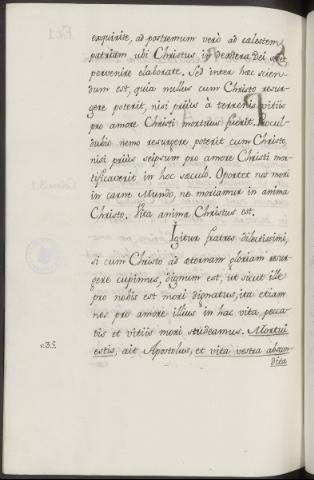 exquirite, ad postremum verò ad calestem
patriam ubi Christus in dextera Dei
pervenire elaborate. Sed inter hac scien-
dum est, quia nullus cum Christo resur-
gere poterit, nisi priùs à terrenis vitiis
pro amore Christi mortuus fuerit. Procul
dubio nemo resurgere poterit cum Christo,
nisi priùs seipsum pro amore Christi mor-
tificaverit in hoc saculo. Oportet nos mori
in carne Mundo, ne moriamur in anima
Christo. Vita anima Christus est.
Igitur fratres dilectissimi,
si cum Christo ad aternam gloriam resur-
gere cupimus, dignum est, ut sicut ille
pro nobis est mori dignatus, ita etiam
nos pro amore illius in hac vita, pecca-
tis et vitiis mori studeamus. Mortui
estis, ait Apostolus, et vita vestra abscon-
dita